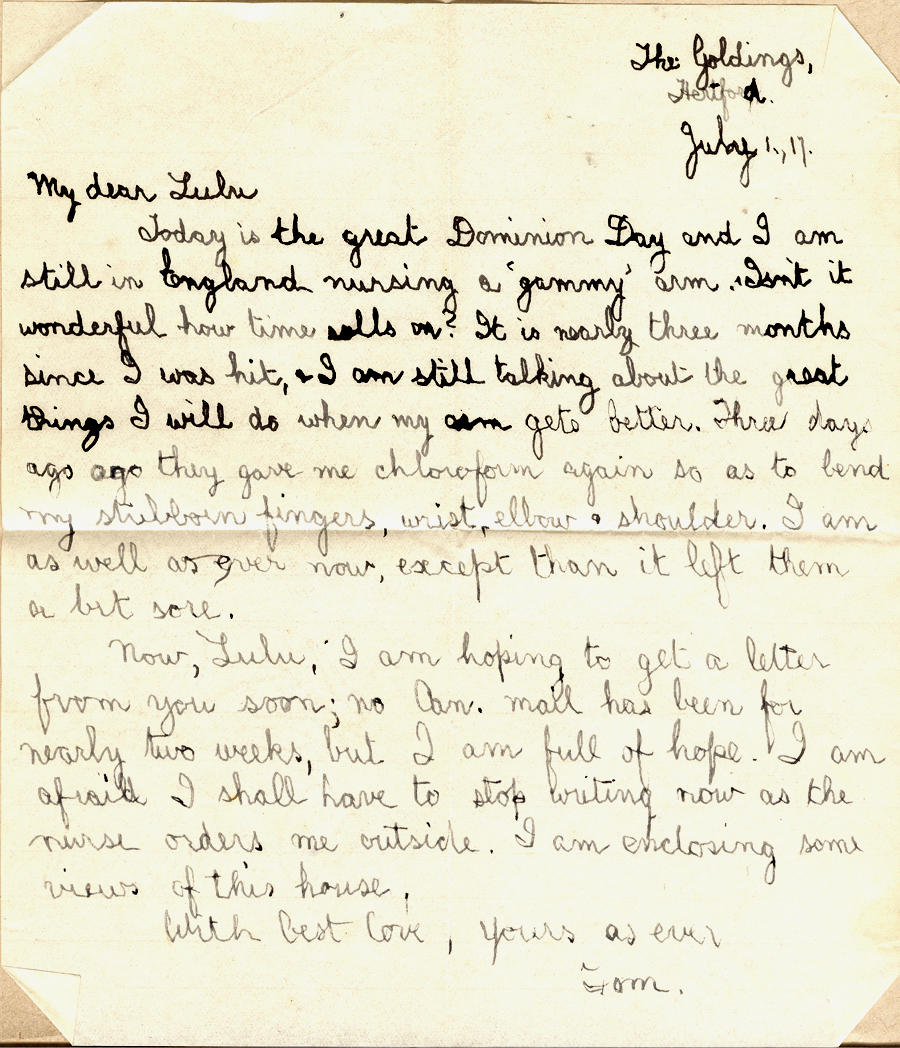 The Goldings,
Hertford.
July 1, 17.
My dear Lulu
Today is the great Dominion Day and I am
still in England nursing a 'gammy' arm. Isn't it
wonderful how time rolls on? It is nearly three months
since I was hit, & I am still talking about the great
things I will do when my arm gets better. Three days
ago ago they gave me chloroform again so as to bend
my stubborn fingers, wrist, elbow & shoulder. I am
as well as ever now, except than it left them
a bit sore.
Now, Lulu, I am hoping to get a letter
from you soon; no Can. mail has been for
nearly two weeks, but I am full of hope. I am
afraid I shall have to stop writing now as the
nurse orders me outside. I am enclosing some
views of this house.
With best love, yours as ever
Tom.